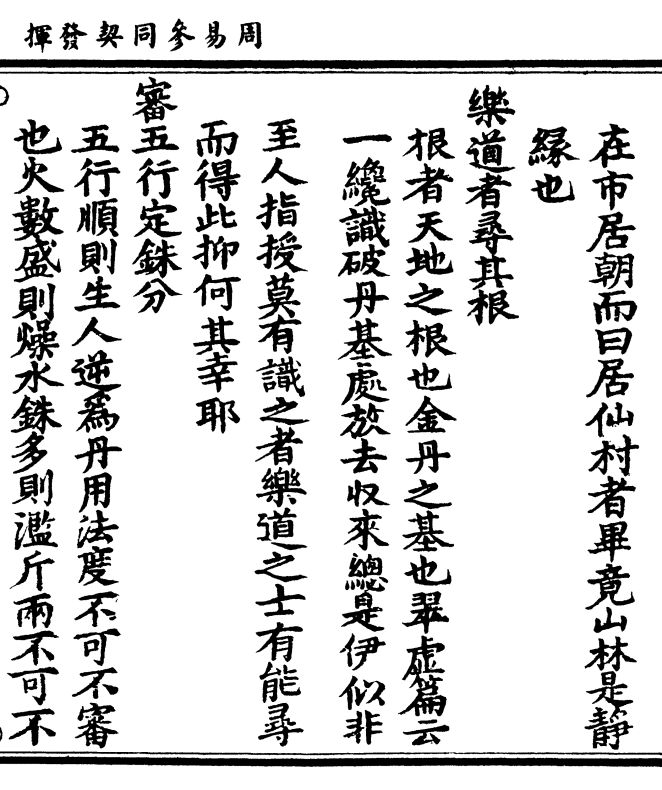 周易參同契發揮
在市居朝而曰居仙村者畢竟山林是靜
緣也
樂道者尋其根
根者天地之根也金丹之基也翠虛篇云
一纔識破丹基處放去收來總是伊似非
至人指授莫有識之者樂道之士有能尋
而得此抑何其幸耶
審五行定銖分
五行順則生人逆爲丹用法度不可不審
也火數盛則燥水銖多則濫斤兩不可不